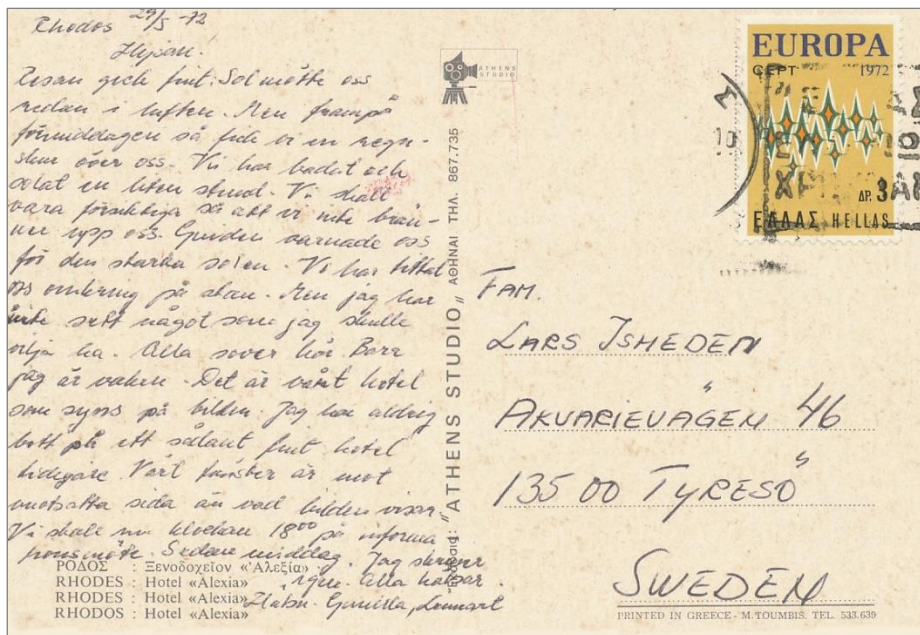 Rhodos 29/5 -72
Hejsan!
Resan gick fint. Sol mötte oss
redan i luften. Men frampå
förmiddagen så fick vi en regn-
skur över oss. Vi har badat och
solat en liten stund. Vi skall
vara försiktiga så att vi inte brän-
ner upp oss. Guiden varnade oss
för den starka solen. Vi har tittat
oss omkring på stan. Men jag har
inte sett något som jag skulle
vilja ha. Alla sover här. Bara
jag är vaken. Det är vårt hotel
som syns på bilden. Jag har aldrig
bott på ett sådant fint hotel
tidigare. Vårt fönster är mot
motsatta sida än vad bilden visar.
Vi skall nu klockan 1800 på informa
tionsmöte. Sedan middag. Jag skriver
igen. Alla hälsar.
Gunilla, Lennart
ΡΟΔΟΣ : Ξενοδοχεῖον «Ἀλεξία»
RHODES : Hotel «Alexia»
RHODES : Hotel «Alexia»
RHODOS : Hotel «Alexia»
ATHENS
STUDIO
"ATHENS STUDIO" ΑΘΗΝΑΙ ΤΗΛ. 867.735
EUROPA
CEPT 1972
ΔΡ. 3
ΕΛΛΑΣ HELLAS
FAM.
LARS ISHEDEN
AKVARIEVÄGEN 46
135 00 TYRESÖ
SWEDEN
PRINTED IN GREECE - M. TOUMBIS. TEL. 533.639